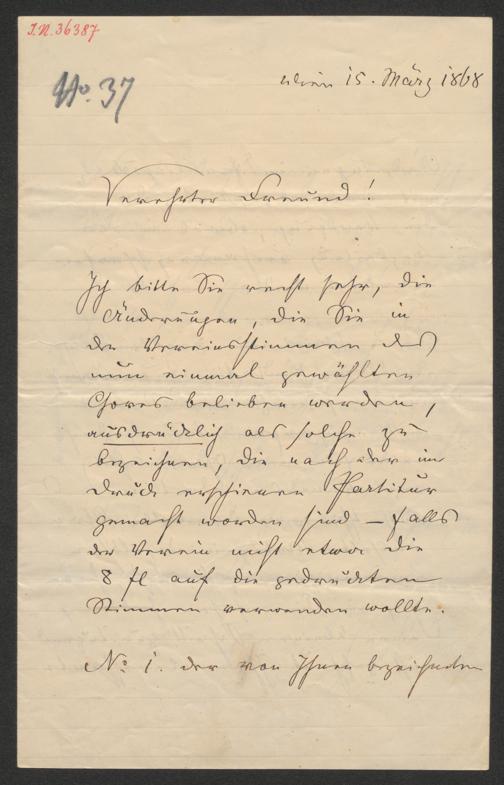 I.N. 36387
No. 37
Wien 15. März 1868
Verehrter Freund!
Ich bitte Sie recht sehr, die
Änderungen, die Sie in
den Vereinsstimmen des
nun einmal gewählten
Chores belieben werden,
ausdrücklich als solche zu
bezeichnen, die nach der im
Druck erschienen Partitur
gemacht worden sind – falls
der Verein nicht etwa die
8 fl auf die gedruckten
Stimmen verwenden wollte.
No. 1. der von Ihnen bezeichneten